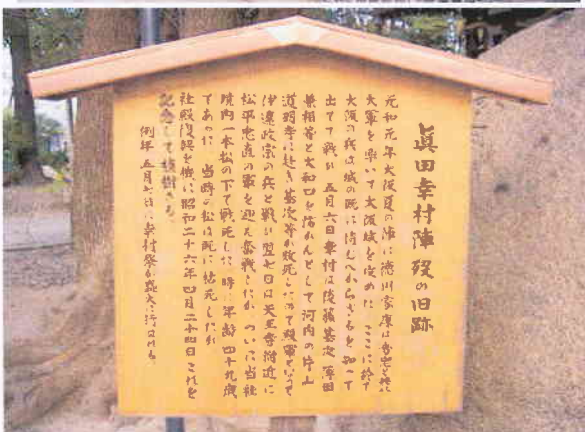 眞田幸村陣歿の旧跡
元和元年大阪夏の陣に徳川家康は秀忠と共に
大軍を率いて大阪城を攻めた ここに於て
大阪の兵は城の既に恃むべからざるを知って
出てて戦い 五月六日幸村は後藤基次 薄田
兼相等と大和口を防がんとして河内の片山
道明寺に赴き基次等が敗死したので殿軍となって
伊達政宗の兵と戦い 翌七日は天王寺附近に
松平忠直の軍を迎え奮戦したが ついに当社
境内一本松の下で戦死した 時に年齢四十九歳
であった 当時の松は既に枯死したが
社殿復興を機に昭和二十六年四月二十四日これを
記念して植樹する
例年 五月七日に幸村祭が盛大に行はれる